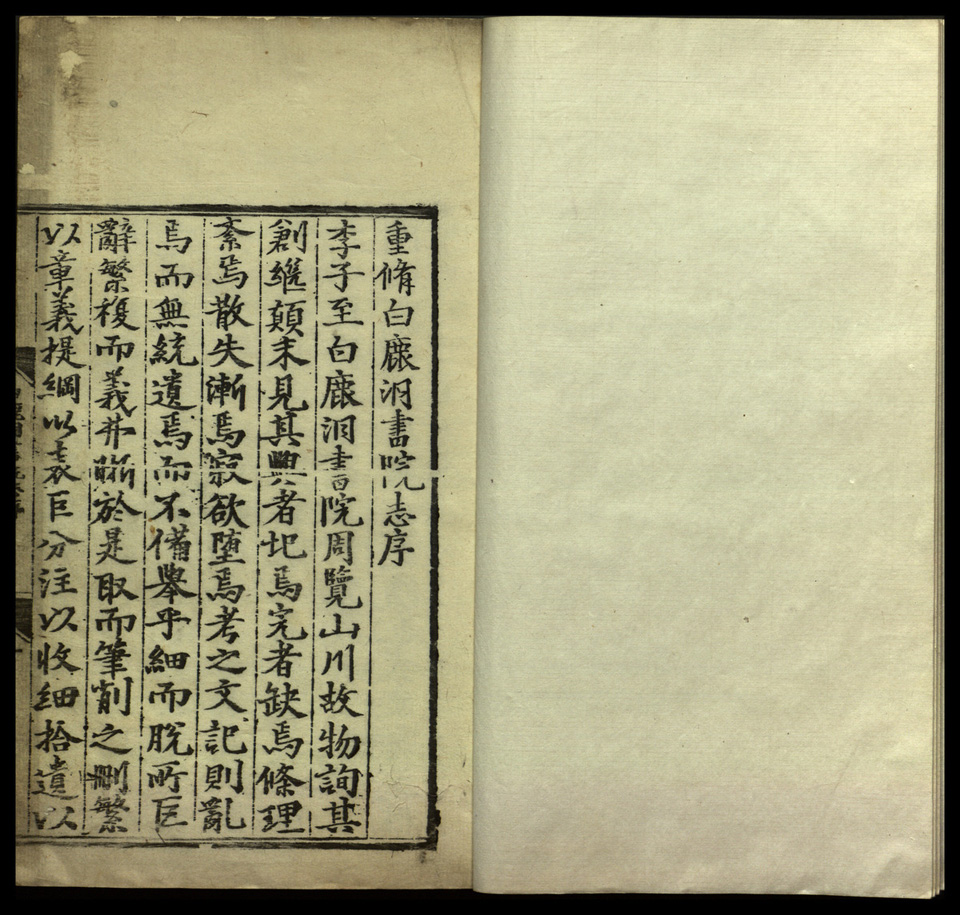 重脩白鹿洞書院志序
李子至白鹿洞書院周覽山川故物詢其
創繼顛末見其興者圯焉完者缺焉條理
紊焉散失漸焉寂欲墮焉考之文記則亂
焉而無統遺焉而不備舉乎細而脫所巨
辭繁複而義弗晰於是取而筆削之刪繁
以章義提綱以表巨分注以收細拾遺以